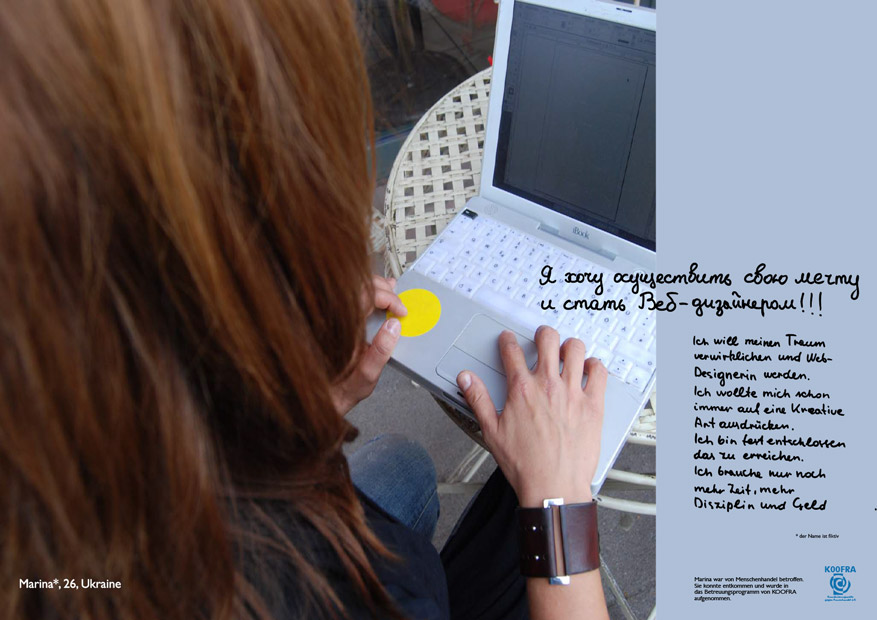 iBook
Я хочу осуществить свою мечту
и стать Веб-дизайнером!!!
Ich will meinen Traum
verwirklichen und Web-
Designerin werden.
Ich wollte mich schon
immer auf eine Kreative
Art ausdrücken.
Ich bin fest entschlossen
das zu erreichen.
Ich brauche nur noch
mehr Zeit, mehr
Disziplin und Geld
* der Name ist fiktiv
Marina*, 26, Ukraine
Marina war von Menschenhandel betroffen.
Sie konnte entkommen und wurde in
das Betreuungsprogramm von KOOFRA
aufgenommen.
KOOFRA